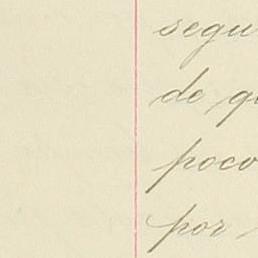 segu
de qu
poco
por